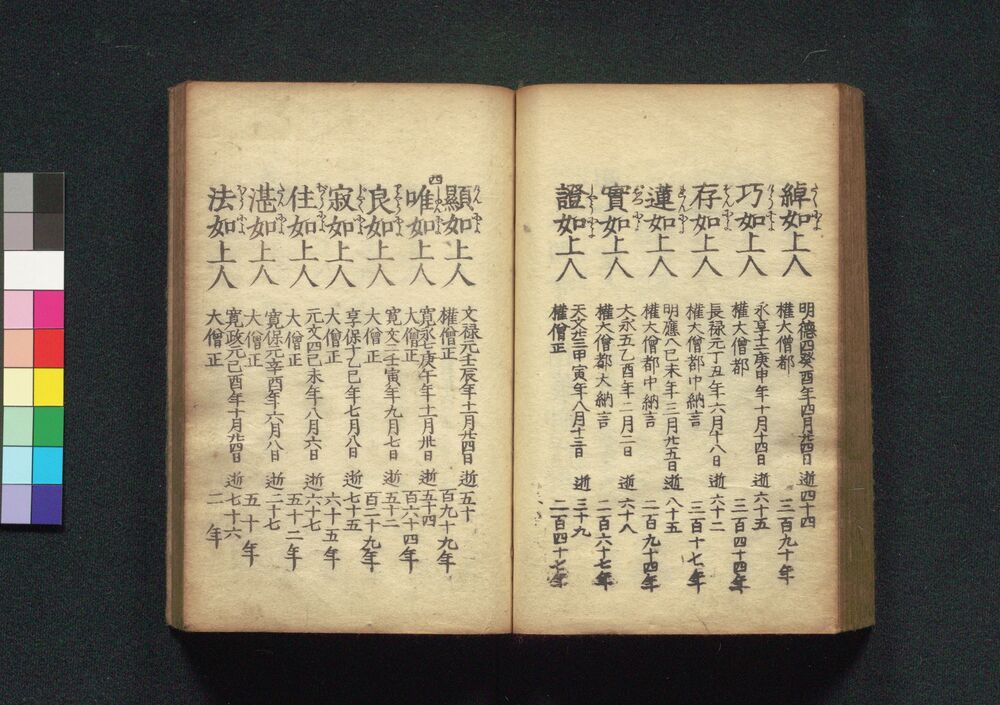 綽如上人
明德四癸酉年四月廿四日 逝四十四
權大僧都 三百九十年
巧如上人
永享十二庚申年十月十四日 逝六十五
權大僧都 三百四十四年
存如上人
長禄元丁丑年六月十八日 逝六十二
權大僧都中納言 三百十七年
蓮如上人
明應八己未年三月廿五日逝 八十五
權大僧都中納言 二百九十四年
實如上人
大永五乙酉年二月二日 逝六十八
權大僧都大納言 二百六十七年
證如上人
天文廿三甲寅年八月十三日 逝三十九
權僧正 二百四十七年
顯如上人
文禄元壬辰年十一月廿四日 逝五十
權僧正 百九十九年
四
唯如上人
寛永七庚午年十一月卅日 逝五十四
大僧正 百六十四年
良如上人
寛文二壬寅年九月七日 逝五十二
大僧正 百二十九年
寂如上人
享保十乙巳年七月八日 逝七十五
大僧正 六十五年
住如上人
元文四己未年八月六日 逝六十七
大僧正 五十二年
湛如上人
寛保元辛酉年六月八日 逝二十七
大僧正 五十年
法如上人
寛政元己酉年十月廿四日 逝七十六
大僧正 二年